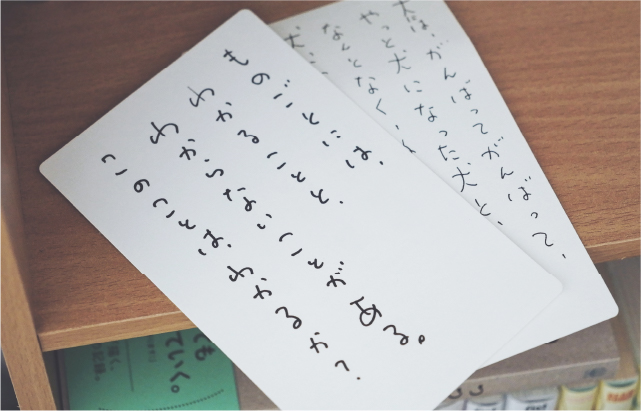 ものごとには、
わかることと、
わからないことがある。
のことは、
犬は、がんばってがんばって、
やっと犬になった犬と、
なんとなく、
犬に